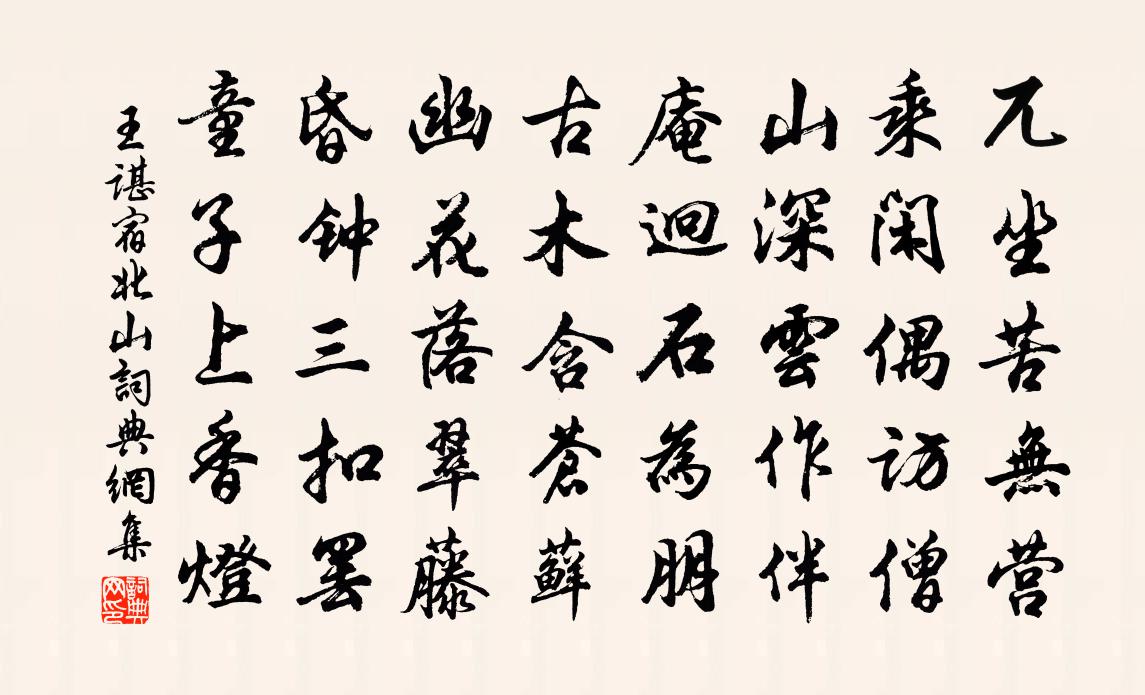 兀坐苦無营
乘閑偶訪僧
山深雲作伴
庵迥石為朋
古木含蒼蘚
幽花落翠藤
昏钟三扣罢
童子上香燈
王諶宿北山詞典網集
詞典网印